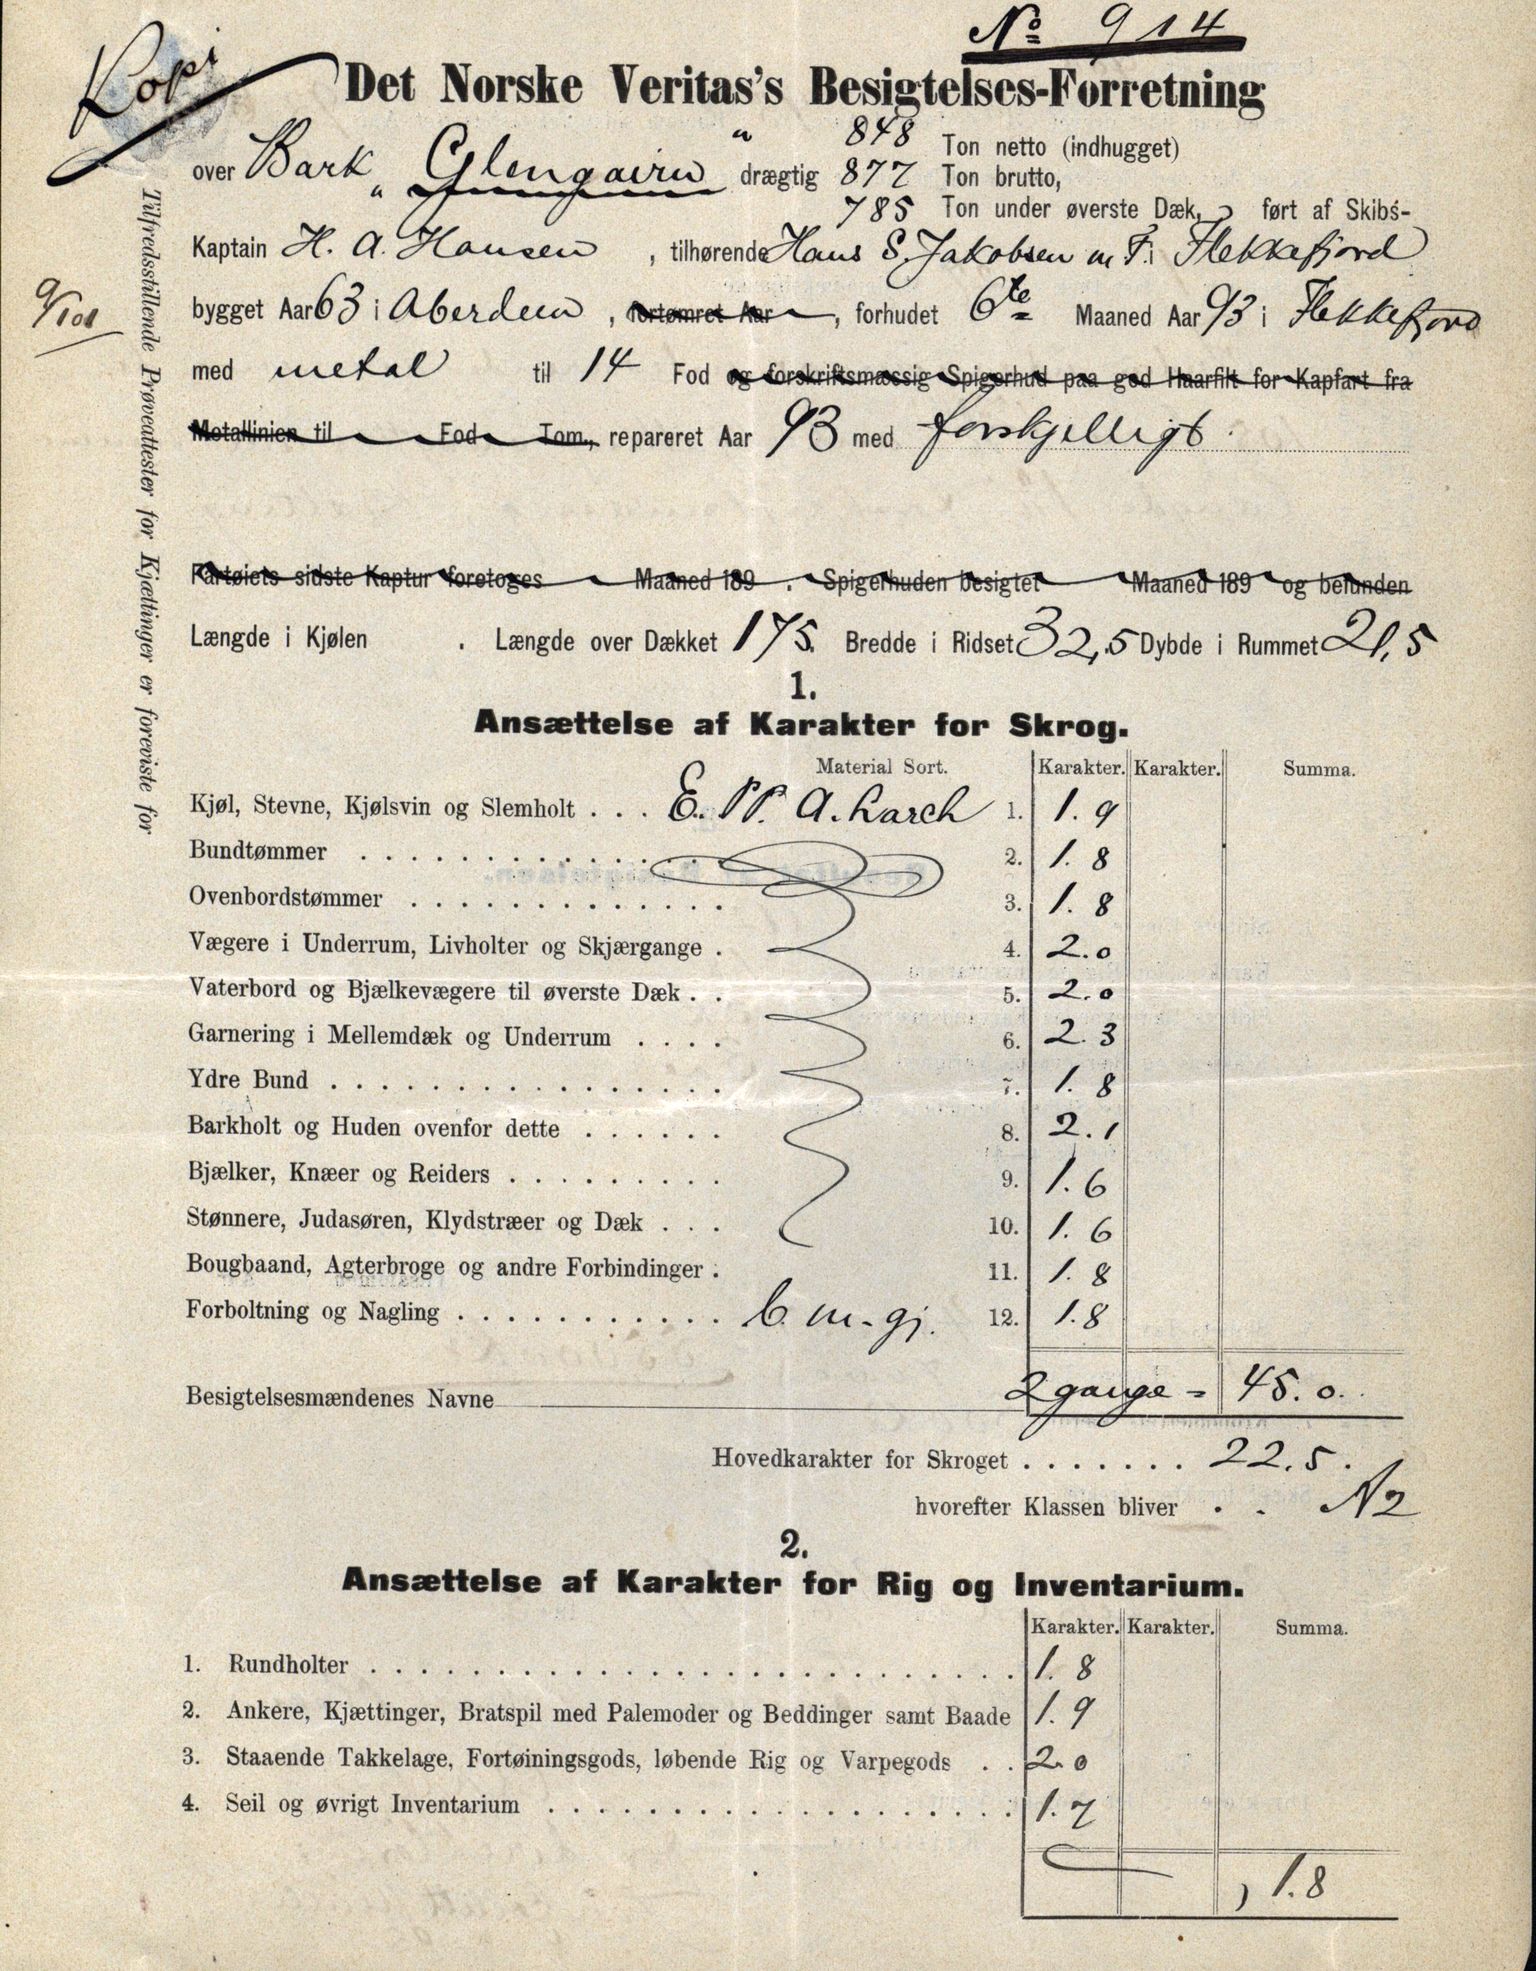 No 914
Kopi
Det Norske Veritas's Besigtelses-Forretning
848 Ton netto (indhugget)
over Bark „Glengairn“ drægtig 877 Ton brutto,
785 Ton under øverste Dæk, ført af Skibs-
Kaptain H. A. Hansen, tilhørende Hans S. Jakobsen m F. i Flekkefjord
bygget Aar 63 i Aberdeen, fortømret Aar, forhudet 6te Maaned Aar 93 i Flekkefjord
med metal til 14 Fod og forskriftsmæssig Spigerhud paa god Haarfilt for Kapfart fra
Metallinien til Fod Tom., repareret Aar 93 med forskjelligt
Fartøiets sidste Kaptur foretoges Maaned 189 . Spigerhuden besigtet Maaned 189 og befunden
Længde i Kjølen . Længde over Dækket 175. Bredde i Ridset 32,5 Dybde i Rummet 21,5
Tilfredsstillende Prøveattester for Kjettinger er foreviste for
1.
Ansættelse af Karakter for Skrog.
Material Sort. Karakter. Karakter. Summa.
Kjøl, Stevne, Kjølsvin og Slemholt . . . E. PP. A. Larch 1. 1.9
Bundtømmer . . . . . . . . . . . . . . 2. 1.8
Ovenbordstømmer . . . . . . . . . . . . . 3. 1.8
Vægere i Underrum, Livholter og Skjærgange . 4. 2.0
Vaterbord og Bjælkevægere til øverste Dæk . . 5. 2.0
Garnering i Mellemdæk og Underrum . . . . 6. 2.3
Ydre Bund . . . . . . . . . . . . . . . . 7. 1.8
Barkholt og Huden ovenfor dette . . . . . . 8. 2.1
Bjælker, Knæer og Reiders . . . . . . . . . 9. 1.6
Stønnere, Judasøren, Klydstræer og Dæk . . . 10. 1.6
Bougbaand, Agterbroge og andre Forbindinger . 11. 1.8
Forboltning og Nagling . . . . . . . . . . . C. m. gj. 12. 1.8
Besigtelsesmændenes Navne 2 gange = 45.0.
Hovedkarakter for Skroget . . . . . . . 22.5.
hvorefter Klassen bliver . . A2
2.
Ansættelse af Karakter for Rig og Inventarium.
Karakter. Karakter. Summa.
1. Rundholter . . . . . . . . . . . . . . . . . . . . . . . . . 1.8
2. Ankere, Kjættinger, Bratspil med Palemoder og Beddinger samt Baade 1.9
3. Staaende Takkelage, Fortøiningsgods, løbende Rig og Varpegods . . 2.0
4. Seil og øvrigt Inventarium . . . . . . . . . . . . . . . . . . 1.7
1.8